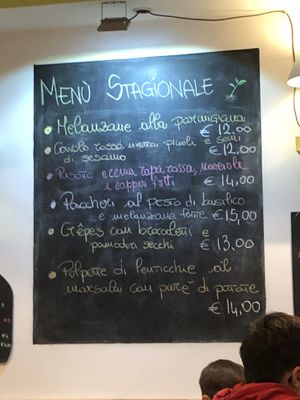 MENÙ STAGIONALE
Melanzane alla parmigiana
€ 12,00
Cavolo rosso, mela, pinoli e semi
di sesamo € 12,00
Risotto crema rapa rossa, nocciole
e capperi fritti
€ 14,00
Paccheri al pesto di basilico
e melanzane € 15,00
Crêpes con bruscoli e
pomodori secchi € 13,00
Polpette di lenticchie al
marsala con purè di patate
€ 14,00